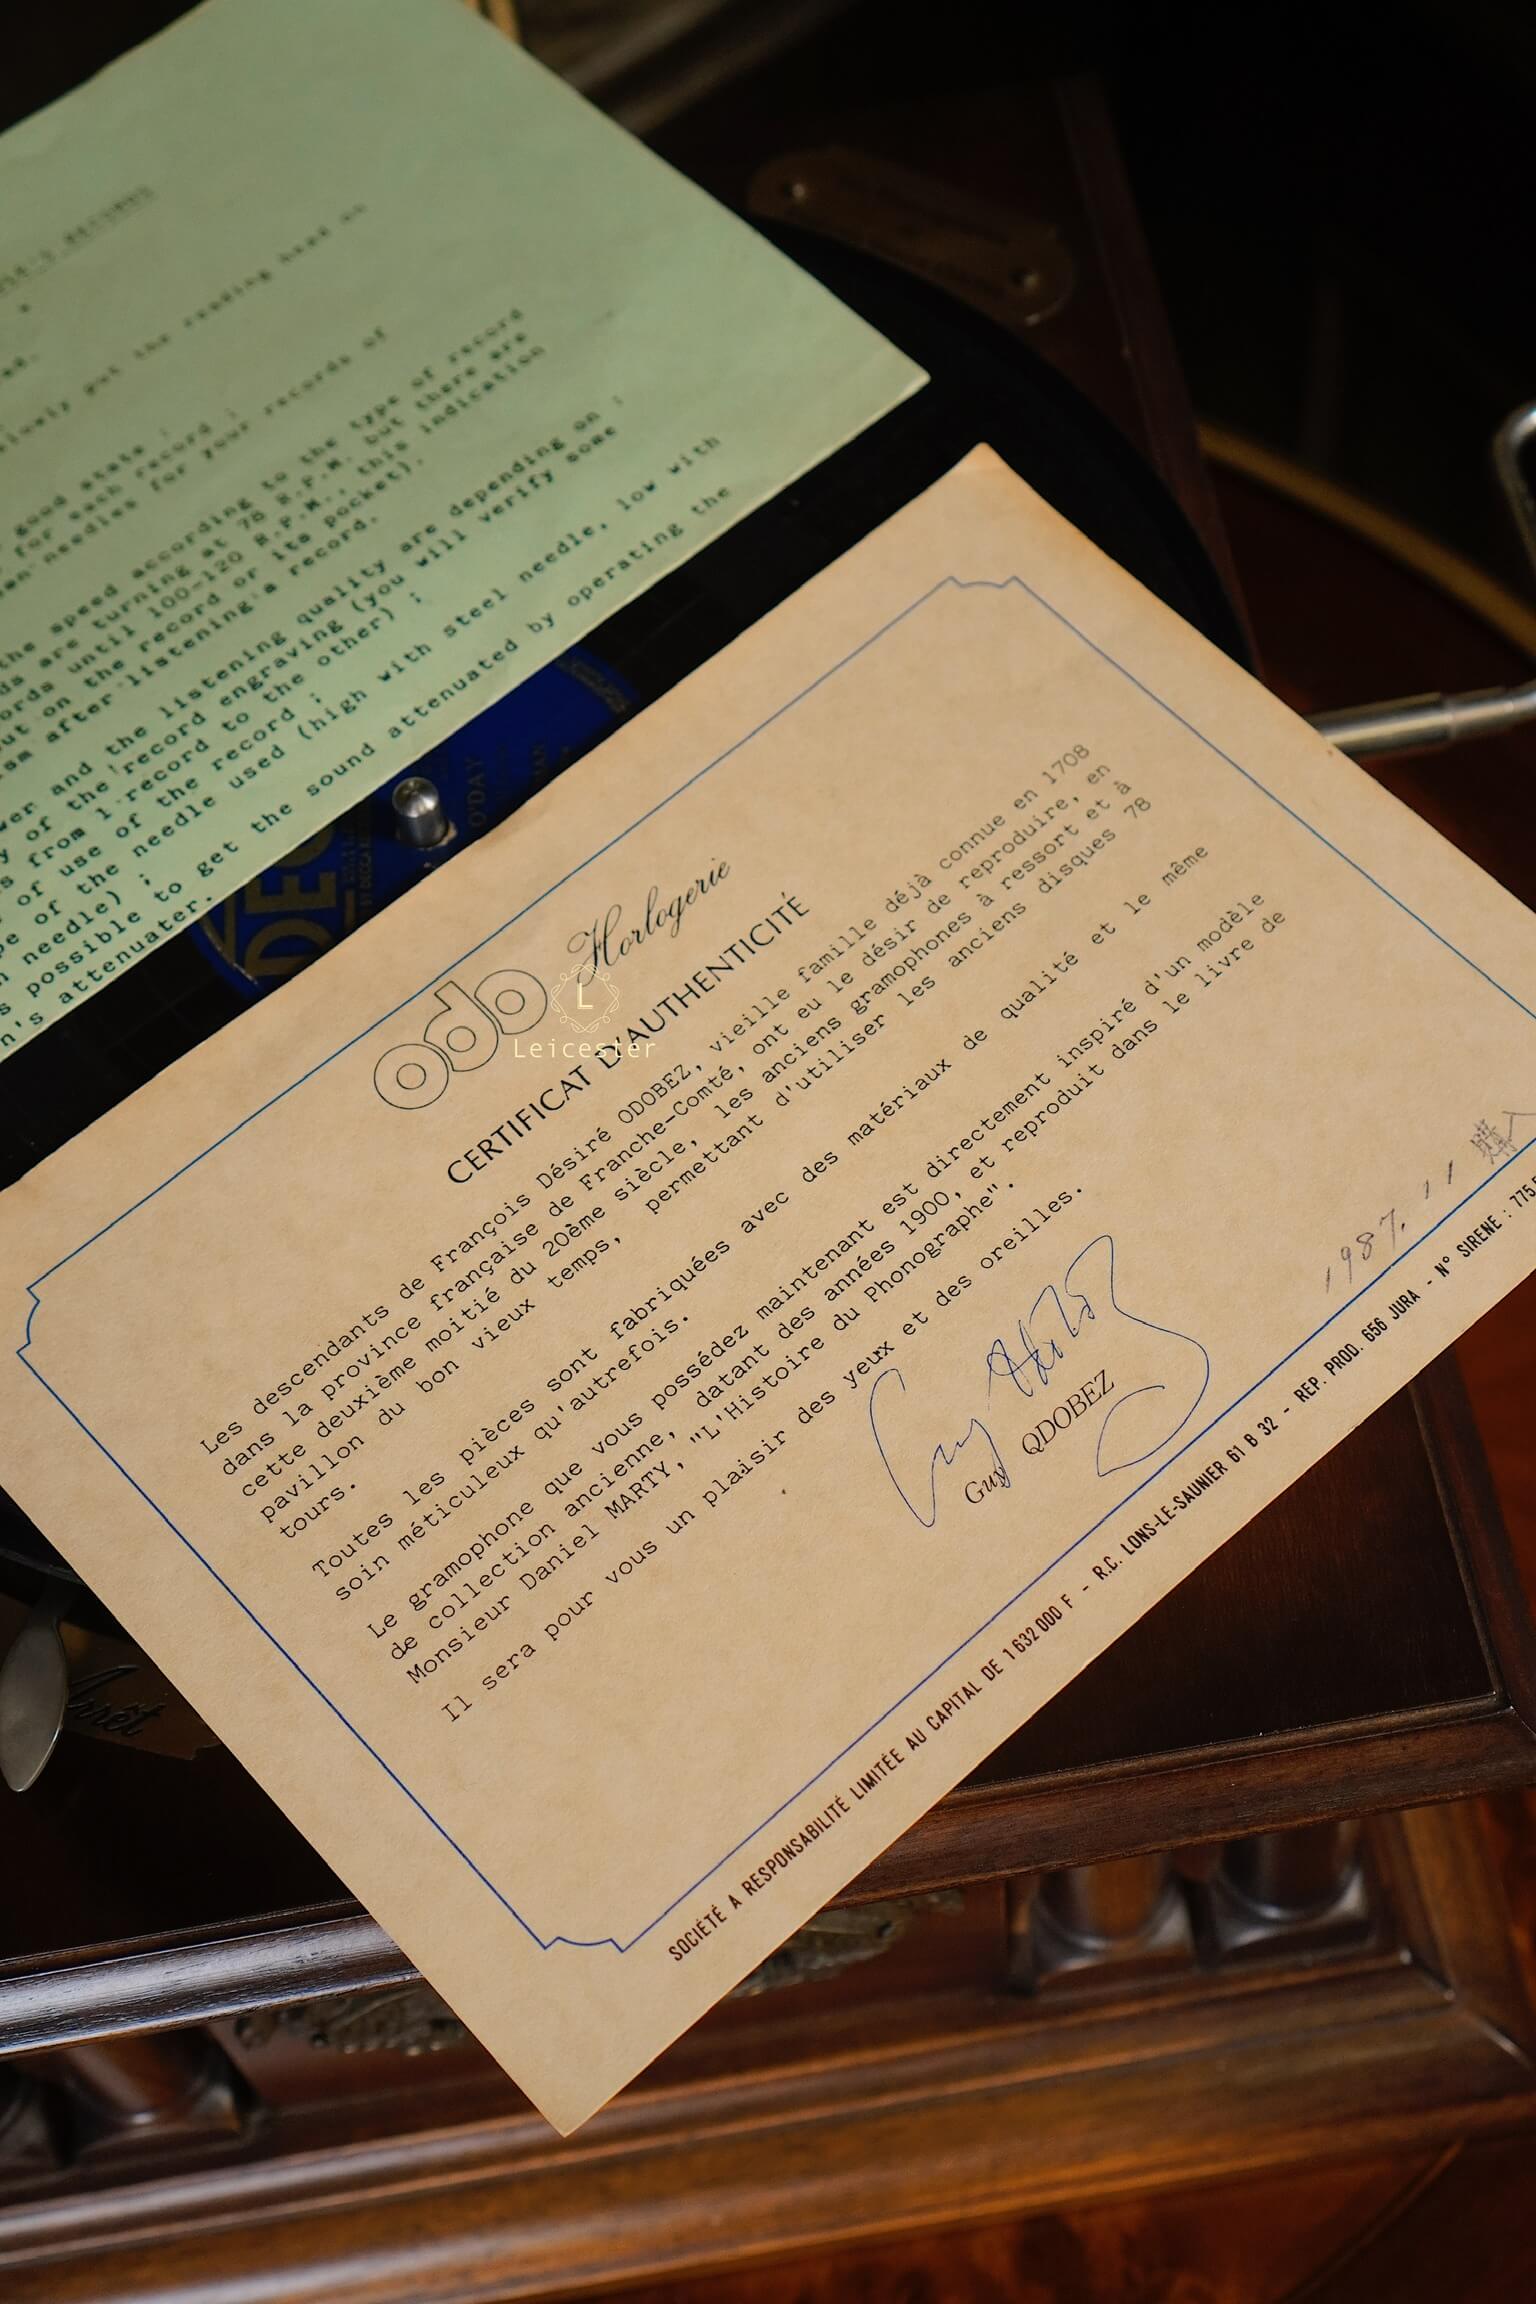 good state ;
for each record ;
needles for your records of
the speed according to the type of record
are turning at 78 R.P.M. but there are
until 100-120 R.P.M., this indication
put on the record or its pocket).
after listening a record.
and the listening quality are depending on :
of the record engraving (you will verify some
from 1 record to the other) ;
of use of the record ;
of the needle used (high with steel needle, low with
needle) ;
possible to get the sound attenuated by operating the
attenuater.
O'DAY
odo Horlogerie
L
Leicester
CERTIFICAT D'AUTHENTICITÉ
Les descendants de François Désiré ODOBEZ, vieille famille déjà connue en 1708
dans la province française de Franche-Comté, ont eu le désir de reproduire, en
cette deuxième moitié du 20ème siècle, les anciens gramophones à ressort et à
pavillon du bon vieux temps, permettant d'utiliser les anciens disques 78
tours.
Toutes les pièces sont fabriquées avec des matériaux de qualité et le même
soin méticuleux qu'autrefois.
Le gramophone que vous possédez maintenant est directement inspiré d'un modèle
de collection ancienne, datant des années 1900, et reproduit dans le livre de
Monsieur Daniel MARTY, "L'Histoire du Phonographe".
Il sera pour vous un plaisir des yeux et des oreilles.
Guy ODOBEZ
1987. 11 購入
SOCIÉTÉ A RESPONSABILITÉ LIMITÉE AU CAPITAL DE 1 632 000 F - R.C. LONS-LE-SAUNIER 61 B 32 - REP. PROD. 656 JURA - N° SIRENE : 775
Arrêt